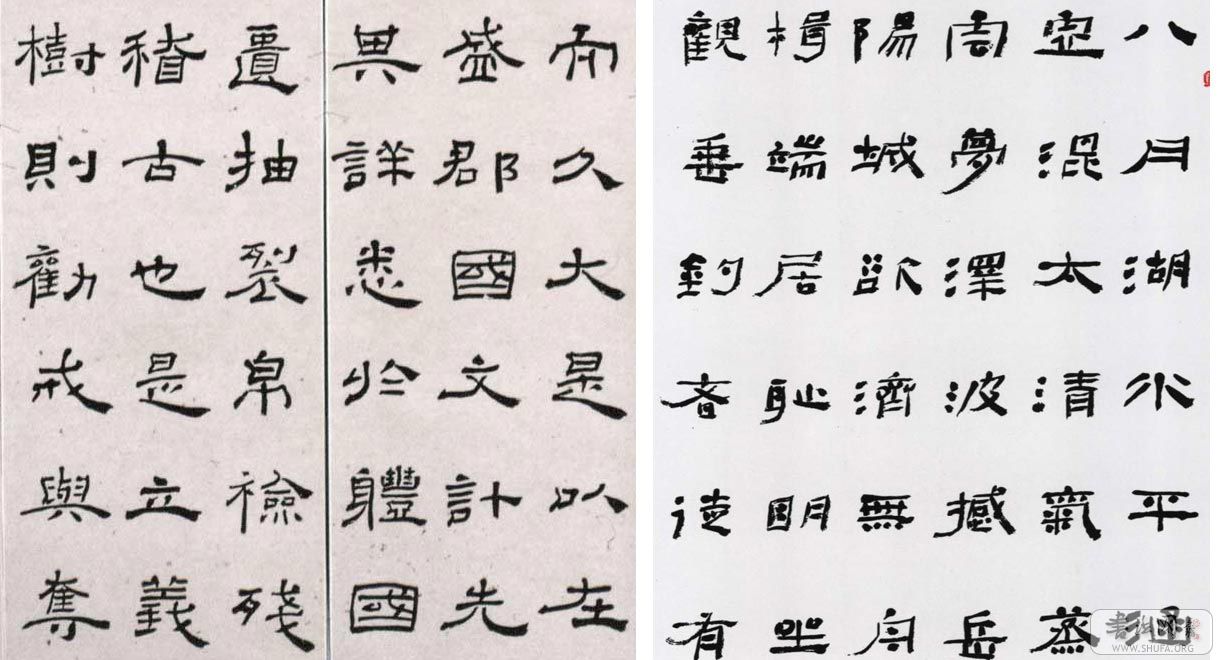 而久大是以在
盛郡國文計先
異詳悉於軆國
遺抽裂帛檢殘
稽古也是立義
樹則勸戒與奪
八月湖水平涵
虛混太清氣蒸
雲夢澤波撼岳
陽城欲濟無舟
楫端居耻明坐
觀垂釣者徒有
WWW.SHUFA.ORG